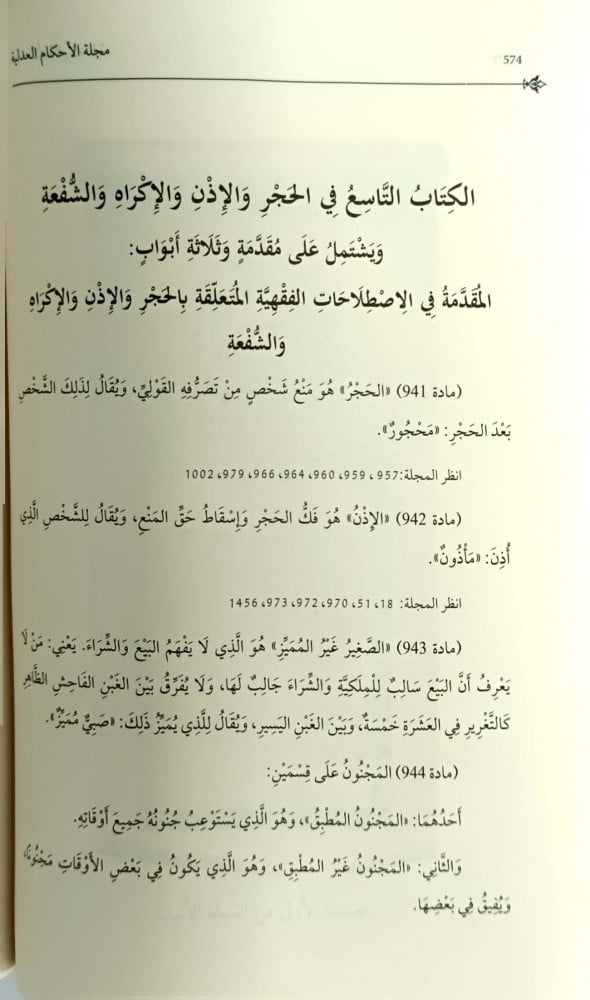 574
مجلة الأحكام العدلية
الكِتَابُ التَّاسِعُ فِي الحَجْرِ وَالإِذْنِ وَالإِكْرَاهِ وَالشُّفْعَةِ
وَيَشْتَمِلُ عَلَى مُقَدَّمَةٍ وَثَلَاثَةِ أَبْوَابٍ:
المُقَدَّمَةُ فِي الِاصْطِلَاحَاتِ الفِقْهِيَّةِ المُتَعَلِّقَةِ بِالحَجْرِ وَالإِذْنِ وَالإِكْرَاهِ
وَالشُّفْعَةِ
(مادة 941) «الحَجْرُ» هُوَ مَنْعُ شَخْصٍ مِنْ تَصَرُّفِهِ القَوْلِيِّ، وَيُقَالُ لِذَلِكَ الشَّخْصِ
بَعْدَ الحَجْرِ: «مَحْجُورٌ».
انظر المجلة:957، 959، 960، 964، 966، 979، 1002
(مادة 942) «الإِذْنُ» هُوَ فَكُّ الحَجْرِ وَإِسْقَاطُ حَقِّ المَنْعِ، وَيُقَالُ لِلشَّخْصِ الَّذِي
أُذِنَ: «مَأْذُونٌ».
انظر المجلة: 18، 51، 970، 972، 973، 1456
(مادة 943) «الصَّغِيرُ غَيْرُ المُمَيِّزِ» هُوَ الَّذِي لَا يَفْهَمُ البَيْعَ وَالشِّرَاءَ. يَعْنِي: مَنْ لَا
يَعْرِفُ أَنَّ البَيْعَ سَالِبٌ لِلْمِلْكِيَّةِ وَالشِّرَاءَ جَالِبٌ لَهَا، وَلَا يُفَرِّقُ بَيْنَ الغَبْنِ الفَاحِشِ الظَّاهِرِ
كَالتَّغْرِيرِ فِي العَشَرَةِ خَمْسَةٌ، وَبَيْنَ الغَبْنِ اليَسِيرِ، وَيُقَالُ لِلَّذِي يُمَيِّزُ ذَلِكَ: «صَبِيٌّ مُمَيِّزٌ».
(مادة 944) المَجْنُونُ عَلَى قِسْمَيْنِ:
أَحَدُهُمَا: «المَجْنُونُ المُطْبِقُ»، وَهُوَ الَّذِي يَسْتَوْعِبُ جُنُونُهُ جَمِيعَ أَوْقَاتِهِ.
وَالثَّانِي: «المَجْنُونُ غَيْرُ المُطْبِقِ»، وَهُوَ الَّذِي يَكُونُ فِي بَعْضِ الأَوْقَاتِ مَجْنُونًا
وَيُفِيقُ فِي بَعْضِهَا.